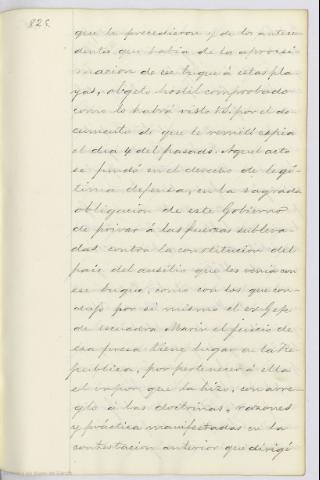 825
que le precedieron y de los antece
dentes que habia de la aprocsi
macion de ese buque á estas pla
yas, objeto hostil comprobado
como lo habrá visto VS. por el do
cumento de que le remití copia
el dia 4 del pasado. Aquel acto
se fundó en el derecho de legí
tima defensa, en la sagrada
obligacion de este Gobierno
de privar á las fuerzas subleva
das contra la constitucion del
pais del ausilio que les venia con
ese buque, como con los que con
dujo por si mismo el ex-Gefe
de escuadra Marin el juicio de
esa presa tiene lugar en la Re
publica, por pertenecer á ella
el vapor que la hizo, con arre
glo á las doctrinas, razones
y práctica manifestadas en la
contestacion anterior que dirigí